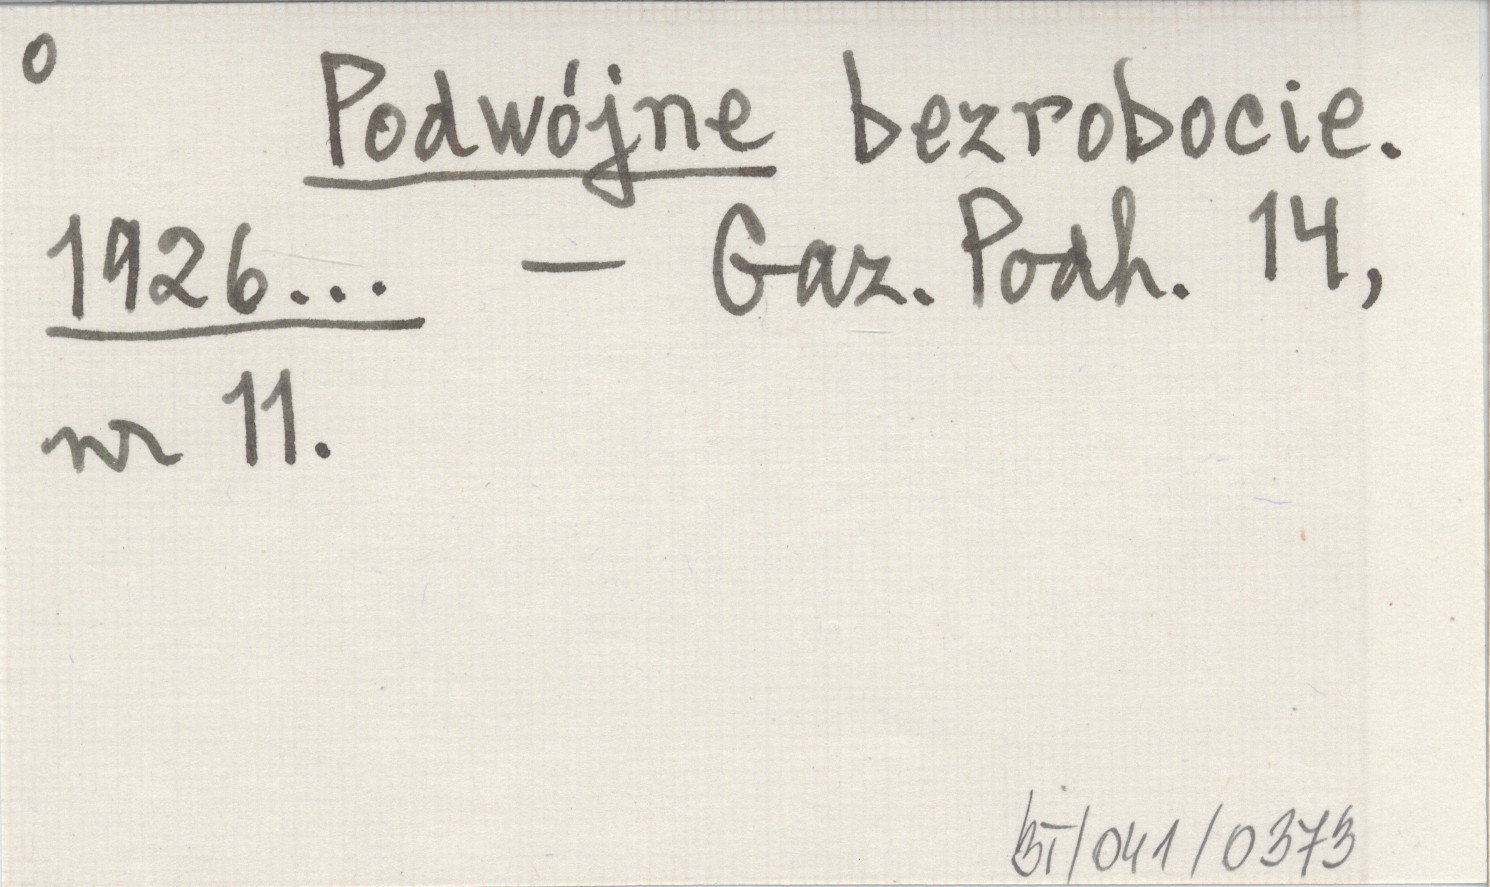 o
Podwójne bezrobocie.
1926... — Gaz. Podh. 14,
nr 11.
BT/041/0373